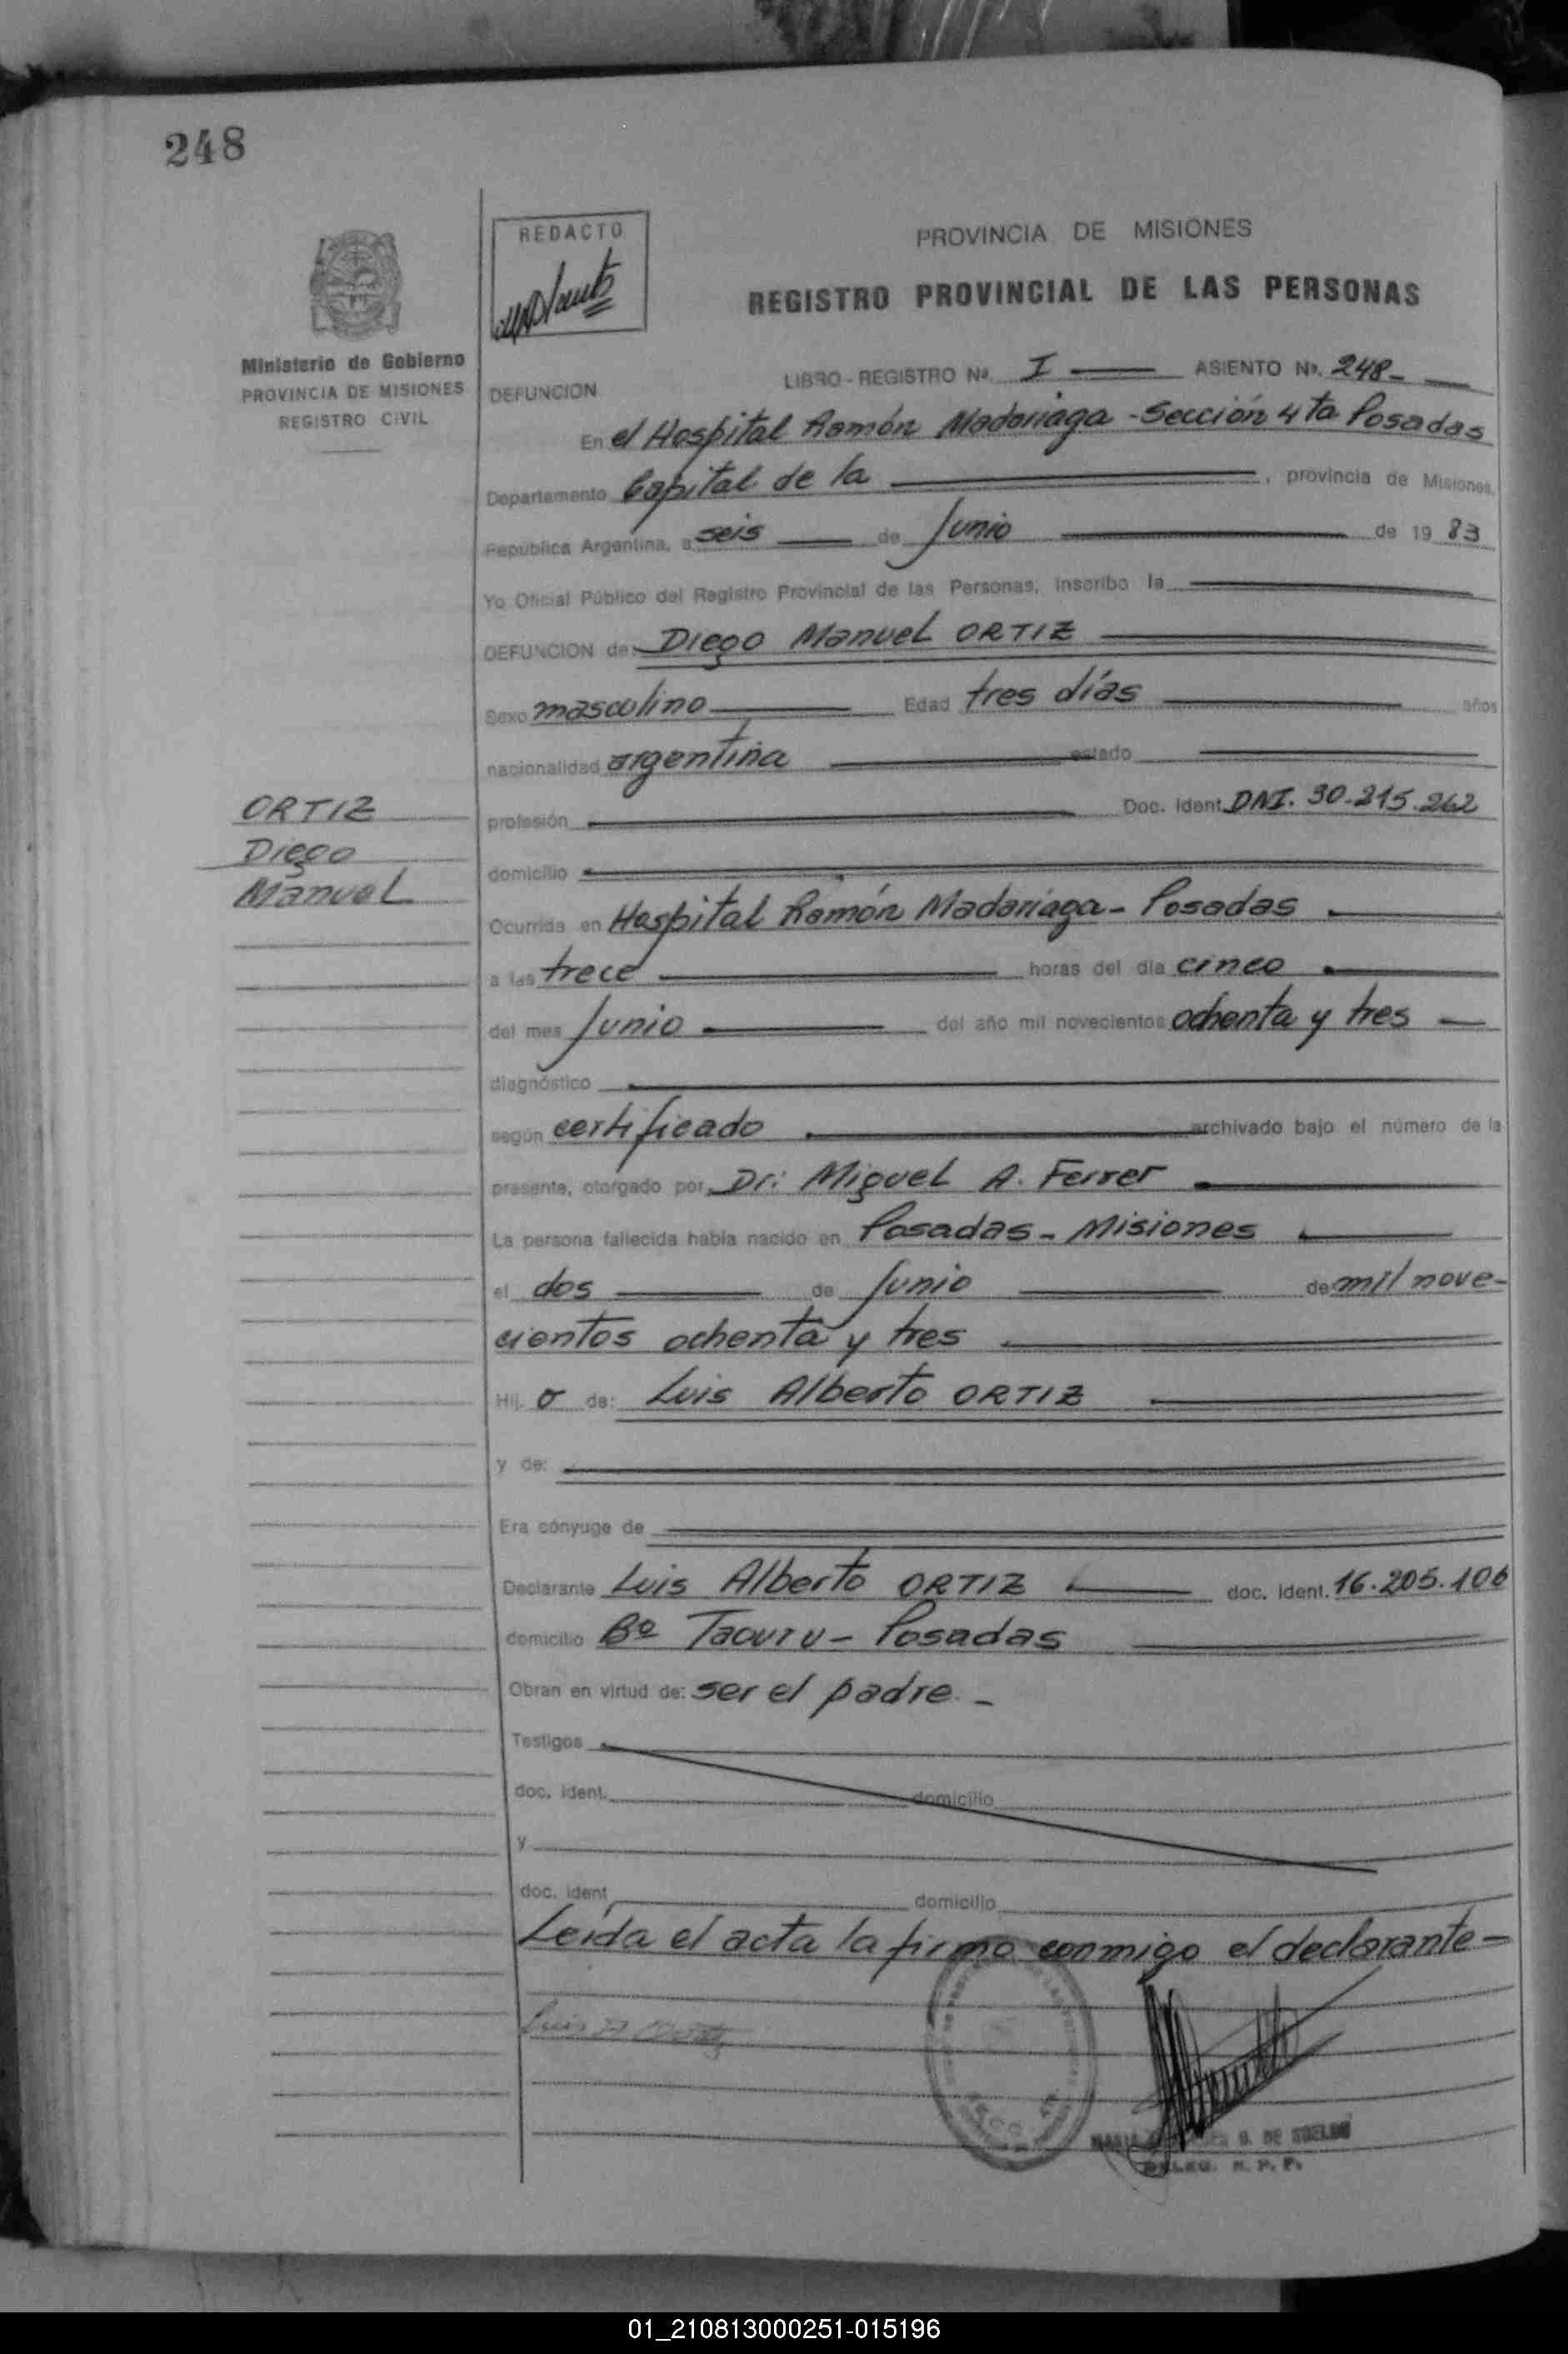 248
REDACTO
PROVINCIA DE MISIONES
REGISTRO PROVINCIAL DE LAS PERSONAS
Ministerio de Gobierno
PROVINCIA DE MISIONES
REGISTRO CIVIL
LIBRO - REGISTRO Nº. I ASIENTO Nº. 248-
DEFUNCION
En el Hospital Ramón Madariaga - Sección 4ta Posadas
Departamento Capital de la , provincia de Misiones,
República Argentina, a seis de Junio de 19 83
Yo Oficial Público del Registro Provincial de las Personas, inscribo la
DEFUNCION de: Diego Manuel ORTIZ
Sexo masculino Edad tres días años
nacionalidad argentina estado
ORTIZ
Diego
Manuel
profesión Doc. Ident. DNI. 30.215.262
domicilio
Ocurrida en Hospital Ramón Madariaga - Posadas
a las trece horas del día cinco
del mes Junio del año mil novecientos ochenta y tres
diagnóstico
según certificado archivado bajo el número de la
presente, otorgado por Dr: Miguel A. Ferrer
La persona fallecida había nacido en Posadas - Misiones
el dos de Junio de mil nove-
cientos ochenta y tres
Hij o de: Luis Alberto ORTIZ
y de:
Era cónyuge de
Declarante Luis Alberto ORTIZ doc. ident. 16.205.106
domicilio Bº Tacuru - Posadas
Obran en virtud de: ser el padre. -
Testigos
doc. ident. domicilio
y
doc. ident domicilio
Leída el acta la firma conmigo el declarante -
Luis A Ortiz
DE SUELDO
DELEG. R. P. P.
01_210813000251-015196